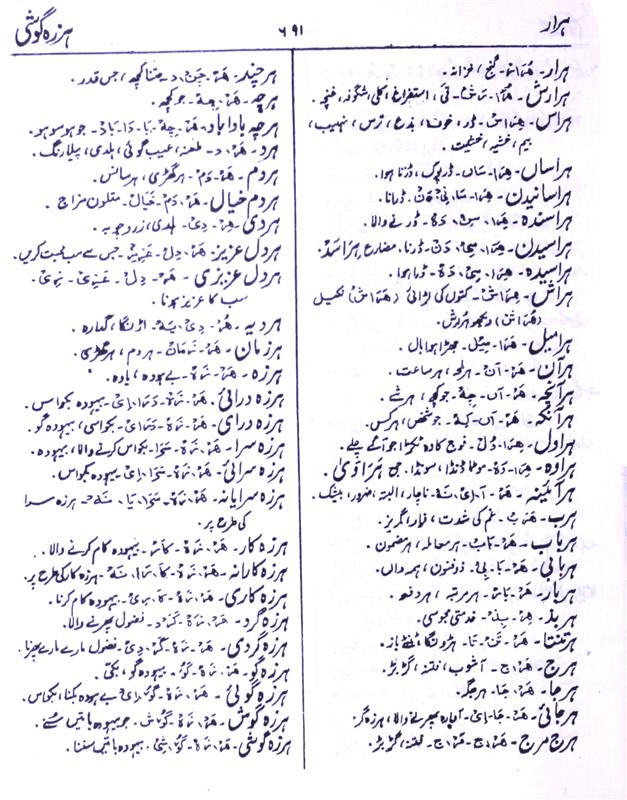 ہرار
۶۹۱
ہرزہ گوشی
ہرار۔ هَرَار۔ گنج، خزانہ۔
ہرارش۔ قَے، استفراغ، کلی، شگوفہ، غنچہ۔
ہراس۔ ڈر، خوف، ترس، نہیب،
بیم، خشیہ، خشیت۔
ہراساں۔ هِرَا۔ سَاں۔ ڈرپوک، ڈرتا ہوا۔
ہراسانیدن۔ ڈرانا۔
ہراسندہ۔ ڈرنے والا۔
ہراسیدن۔ ڈرنا، مضارع ہراسد۔
ہراسیدہ۔ ڈرا ہوا۔
ہراش۔ هِرَاش۔ کتوں کی لڑائی (هَرَاش) نکیل
دیکھو ہروش۔
ہرامیل۔ هَرَا۔ مِیْل۔ جھڑا ہوا بال۔
ہرآن۔ هَرْ۔ آن۔ ہر لحہ، ہر ساعت۔
ہرآنچہ۔ هَرْ۔ آں۔ چِہ۔ جو کچھ، ہر شے۔
ہرآنکہ۔ هَرْ۔ آں۔ کِہ۔ جو شخص، ہر کس۔
ہراول۔ فوج کا وہ ٹکڑا جو آگے چلے۔
ہراوہ۔ موٹا ڈنڈا، سونٹا، جمع هَرَاویٰ۔
ہرآئینہ۔ ناچار، البتہ، ضرور، بیشک۔
ہرب۔ هَرَب۔ غم کی شدت، فرار، گریز۔
ہرباب۔ هَرْ۔ بَاب۔ ہر معاملہ، ہر مضمون۔
ہربابی۔ ذوفنون، ہمہ داں۔
ہربار۔ هَرْ۔ بَار۔ ہر مرتبہ، ہر دفعہ۔
ہربد۔ خدمتی مجوسی۔
ہرتنتا۔ هَرْ۔ تَنْ۔ تَا۔
ہرج۔ هَرْج۔ آشوب، فتنہ، گڑبڑ۔
ہرجا۔ هَرْ۔ جَا۔ ہر جگہ۔
ہرجائی۔ هَرْ۔ جَا۔ ئِیْ۔ آوارہ پھرنے والا، ہرزہ گرد۔
ہرج مرج۔ هَرْج۔ مَرْج۔ فتنہ، گڑبڑ۔
ہرچند۔ هَرْ۔ چَنْ۔ د۔ جتنا کچھ، جس قدر۔
ہرچہ۔ هَرْ۔ چِہ۔ جو کچھ۔
ہرچہ بادا باد۔ هَرْ۔ چِہ۔ بَا۔ دَا۔ بَاد۔ جو ہو سو ہو۔
ہرد۔ هَرْ۔ د۔ طعنہ، عیب گوئی، ہلدی، پیلا رنگ۔
ہردم۔ هَرْ۔ دَم۔ ہر گھڑی، ہر سانس۔
ہردم خیال۔ هَرْ۔ دَم۔ خَیَال۔ متلون مزاج۔
ہردی۔ هَرْ۔ دِی۔ ہلدی، زرد چوبہ۔
ہردل عزیز۔ هَرْ۔ دِل۔ عَزِیْز۔ جس سے سب محبت کریں۔
ہردل عزیزی۔ هَرْ۔ دِل۔ عَزِیْ۔ زِیْ۔
سب کا عزیز ہونا۔
ہردیہ۔ اڑنگا، گہارہ۔
ہرزمان۔ هَرْ۔ زَمَان۔ ہر دم، ہر گھڑی۔
ہرزہ۔ هَرْ۔ زَہ۔ بے ہودہ، یاوہ۔
ہرزہ درائی۔ هَرْ۔ زَہ۔ دَرَا۔ ئِیْ۔ بیہودہ بکواس۔
ہرزہ درای۔ بکواسی، بیہودہ گو۔
ہرزہ سرا۔ هَرْ۔ زَہ۔ سَرَا۔ بکواس کرنے والا، بیہودہ۔
ہرزہ سرائی۔ هَرْ۔ زَہ۔ سَرَا۔ ئِیْ۔ بیہودہ بکواس۔
ہرزہ سرایانہ۔ هَرْ۔ زَہ۔ سَرَا۔ یَا۔ نَہ۔ ہرزہ سرا
کی طرح پر۔
ہرزہ کار۔ هَرْ۔ زَہ۔ کَار۔ بیہودہ کام کرنے والا۔
ہرزہ کارانہ۔ هَرْ۔ زَہ۔ کَا۔ رَا۔ نَہ۔ ہرزہ کار کی طرح پر۔
ہرزہ کاری۔ هَرْ۔ زَہ۔ کَا۔ رِیْ۔ بیہودہ کام کرنا۔
ہرزہ گرد۔ هَرْ۔ زَہ۔ گَرْد۔ فضول پھرنے والا۔
ہرزہ گردی۔ هَرْ۔ زَہ۔ گَرْ۔ دِیْ۔ فضول مارے مارے پھرنا۔
ہرزہ گو۔ هَرْ۔ زَہ۔ گُو۔ بیہودہ گو، بکّی۔
ہرزہ گوئی۔ هَرْ۔ زَہ۔ گُو۔ ئِیْ۔ بے ہودہ بکنا، بکواس۔
ہرزہ گوش۔ هَرْ۔ زَہ۔ گُوْش۔ جو بیہودہ باتیں سنے۔
ہرزہ گوشی۔ هَرْ۔ زَہ۔ گُو۔ شِیْ۔ بیہودہ باتیں سننا۔